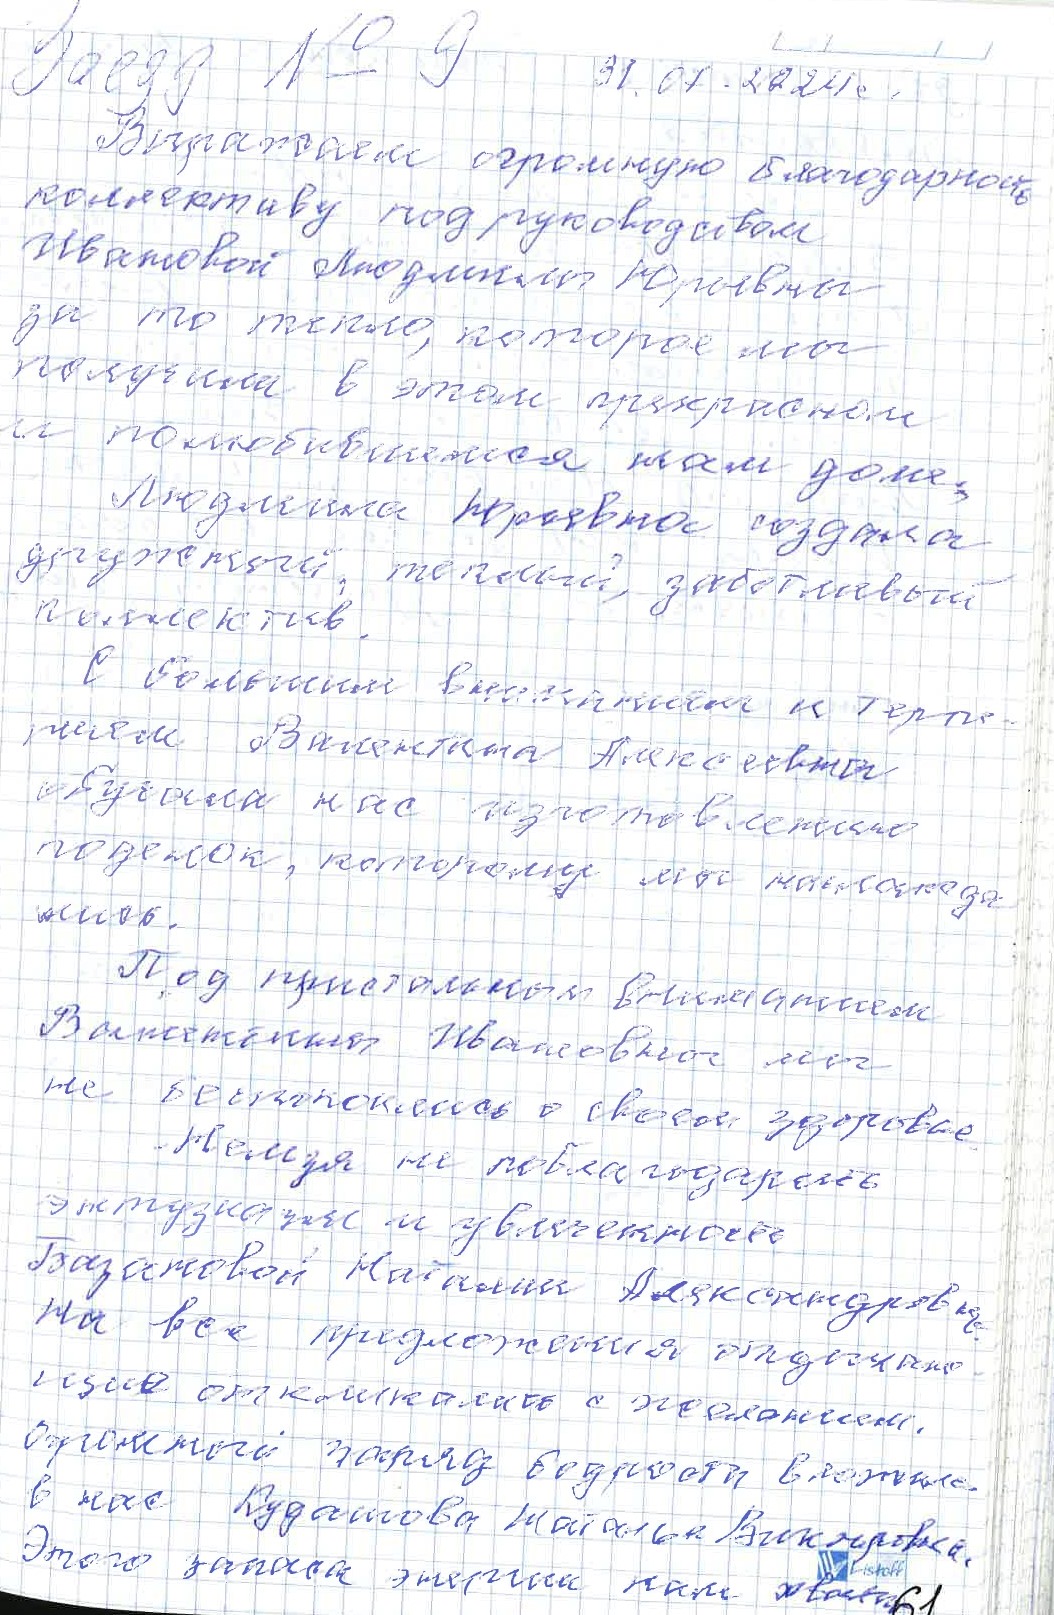 Заезд № 9 31.07.2024г.
Выражаем огромную благодарность
коллективу под руководством
Ивановой Людмилы Юрьевны
за то тепло, которое мы
получили в этом прекрасном
и полюбившемся нам доме.
Людмила Юрьевна создала
дружный, теплый, заботливый
коллектив.
С большим вниманием и терпе-
нием Валентина Алексеевна
обучала нас изготовлению
поделок, которому мы
Под пристальным вниманием
Валентины Ивановны мы
не беспокоились о своем здоровье
Нельзя не поблагодарить
энтузиазм и увлеченность
Базановой Наталии Александровны.
На все предложения отдыхаю-
щие откликались с желанием.
Огромный заряд бодрости вложила
в нас Кудашова Наталья Викторовна.
Этого запаса энергии нам
Listoff
61